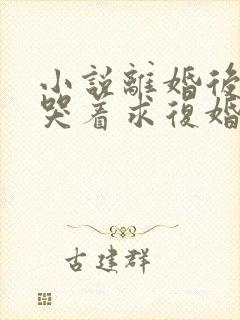 小說離婚後
哭着求復婚
古建群